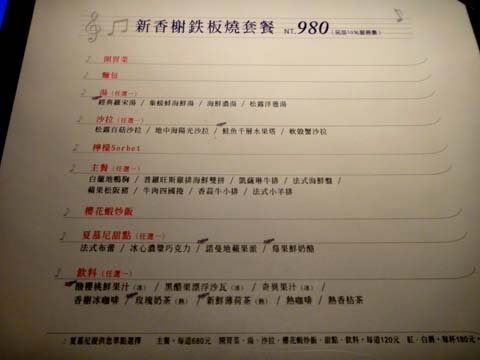 新香榭鉄板燒套餐 NT. 980 (另加10%服務費)
開胃菜
麵包
湯 (任選一)
經典羅宋湯 / 集蝦鮮海鮮湯 / 海鮮濃湯 / 松露洋蔥湯
沙拉 (任選一)
松露百菇沙拉 / 地中海陽光沙拉 / 鮭魚千層水果塔 / 軟殼蟹沙拉
檸檬Sorbet
主餐 (任選一)
白蘭地鴨胸 / 普羅旺斯雞排海鮮雙拼 / 凱薩琳牛排 / 法式海鮮盤 /
蘋果松阪豬 / 牛肉四國捲 / 香蒜牛小排 / 法式小羊排
櫻花蝦炒飯
夏慕尼甜點 (任選一)
法式布蕾 / 冰心濃漿巧克力 / 諾曼地蘋果派 / 莓果鮮奶酪
飲料 (任選一)
酸櫻桃鮮果汁 (冰) / 黑醋栗漂浮沙瓦 (冰) / 奇異果汁 (冰) /
香榭冰咖啡 / 玫瑰奶茶 (熱) / 新鮮薄荷茶 (熱) / 熱咖啡 / 熱香桔茶
夏慕尼提供您單點選擇 主餐,每道680元 開胃菜、湯、沙拉、櫻花蝦炒飯、甜點、飲料,每道120元 紅、白酒,每杯180元